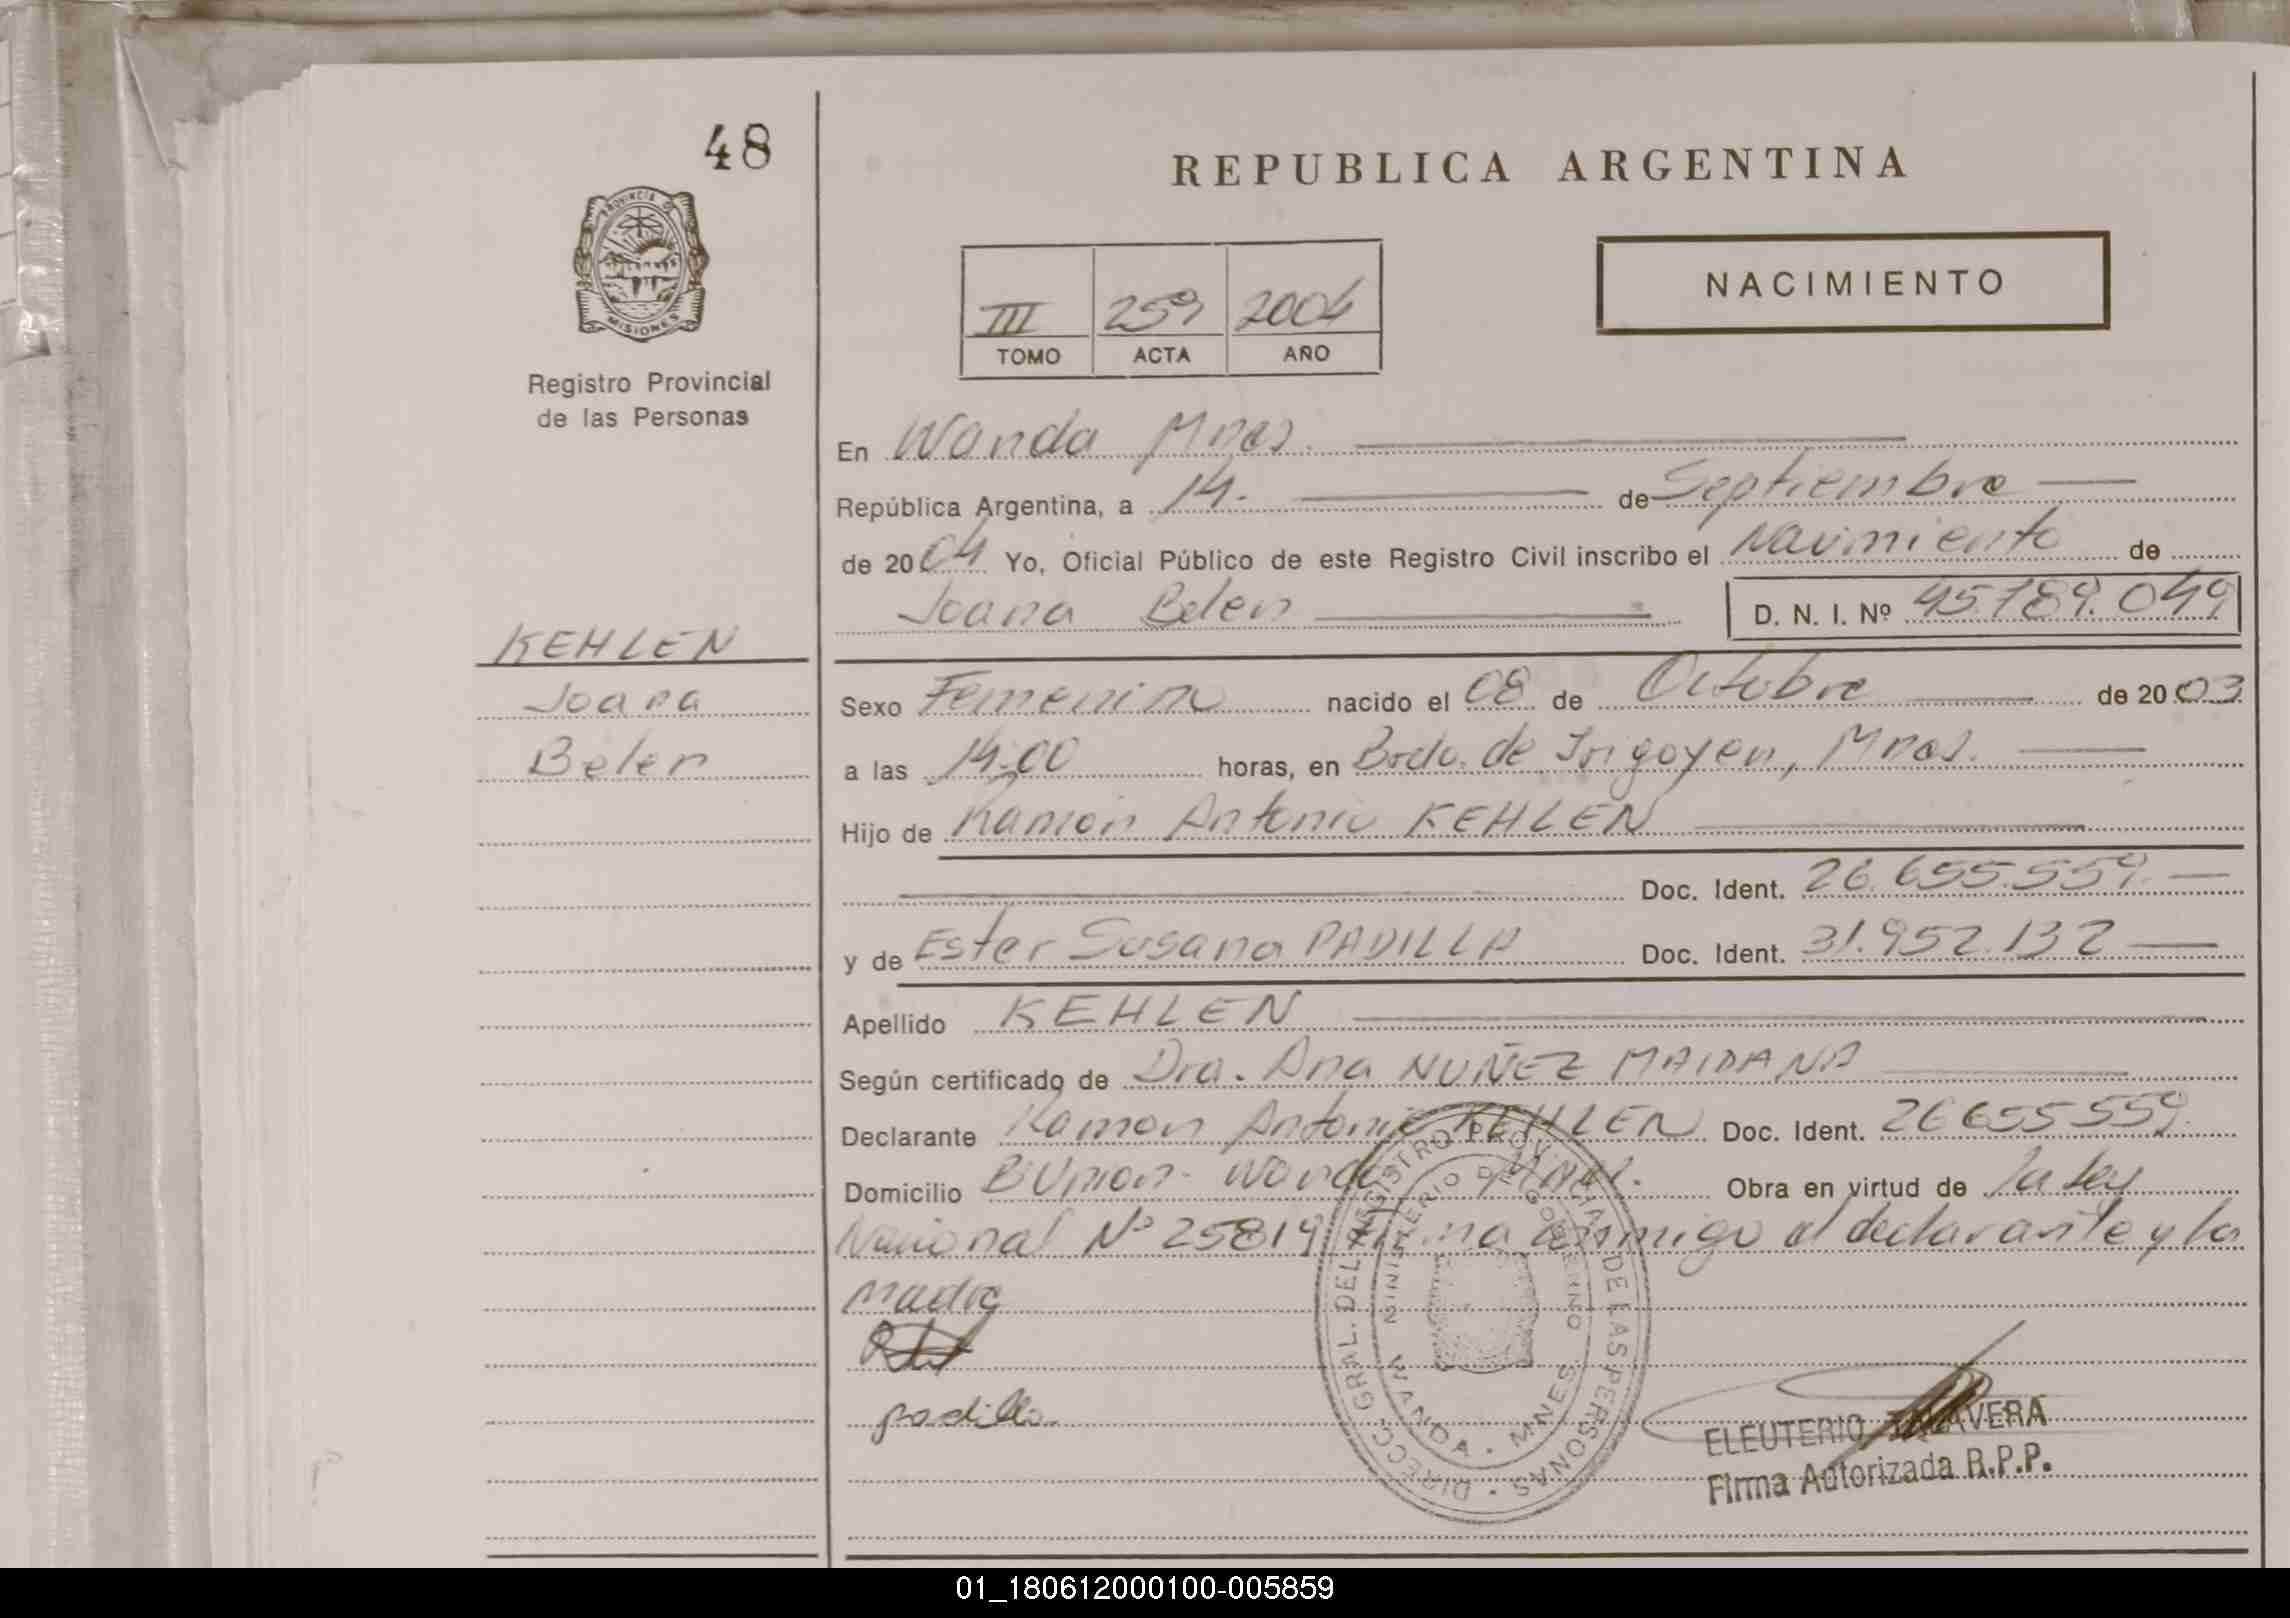 48
PROVINCIA DE
MISIONES
Registro Provincial
de las Personas
KEHLEN
Joana
Belen
REPUBLICA ARGENTINA
NACIMIENTO
III 259 2004
TOMO ACTA AÑO
En Wanda Mnes.
República Argentina, a 14. de Septiembre
de 2004 Yo, Oficial Público de este Registro Civil inscribo el Nacimiento de
Joana Belen D. N. I. Nº 45.789.049
Sexo Femenino nacido el 08 de Octubre de 2003
a las 14:00 horas, en Brdo. de Irigoyen, Mnes.
Hijo de Ramón Antonio KEHLEN
Doc. Ident. 26.655.559.
y de Ester Susana PADILLA Doc. Ident. 31.952.132
Apellido KEHLEN
Según certificado de Dra. Ana NUÑEZ MAIDANA
Declarante Ramon Antonio KEHLEN Doc. Ident. 26655559.
Domicilio B Union - Wanda Mnes. Obra en virtud de la Ley
Nacional Nº 25819 Firma conmigo el declarante y la
madre
padilla
DIRECC. GRAL. DEL REGISTRO PROVINCIAL DE LAS PERSONAS
MINISTERIO DE GOBIERNO
WANDA - MNES
ELEUTERIO TALAVERA
Firma Autorizada R.P.P.
01_180612000100-005859